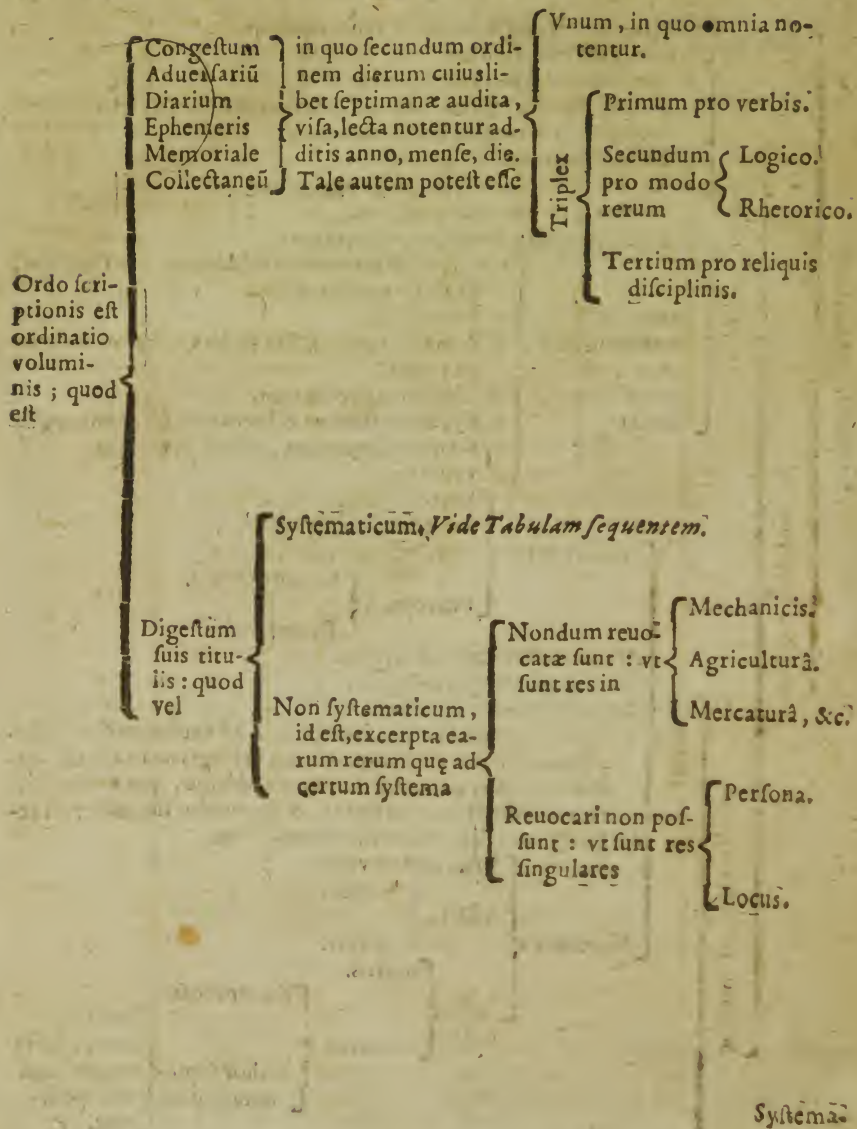 Ordo ſcri-
ptionis eſt
ordinatio
volumi-
nis ; quod
eſt
Congeſtum
Aduerſariũ
Diarium
Ephemeris
Memoriale
Collectaneũ
in quo ſecundum ordi-
nem dierum cuiusli-
bet ſeptimanæ audita,
viſa, lecta notentur ad-
ditis anno, menſe, die.
Tale autem poteſt eſſe
Vnum, in quo omnia no-
tentur.
Triplex
Primum pro verbis.
Secundum
pro modo
rerum
Logico.
Rhetorico.
Tertium pro reliquis
diſciplinis.
Digeſtum
ſuis titu-
lis : quod
vel
Syſtematicum. Vide Tabulam ſequentem.
Non ſyſtematicum,
id eſt, excerpta ea-
rum rerum quę ad
certum ſyſtema
Nondum reuo-
catæ ſunt : vt
ſunt res in
Mechanicis.
Agriculturâ.
Mercaturâ, &c.
Reuocari non poſ-
ſunt : vt ſunt res
ſingulares
Perſona.
Locus.
Syſtema-